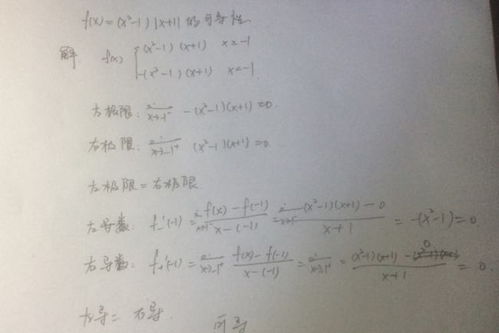 f(x)=(x²-1)|x+1| 的可导性
解: f(x) { (x²-1)(x+1) x≥-1
-(x²-1)(x+1) x<-1
左极限: lim x→-1⁻ -(x²-1)(x+1)=0.
右极限: lim x→-1⁺ (x²-1)(x+1)=0
左极限=右极限
左导数: f₋'(-1)=lim x→-1⁻ f(x)-f(-1) / x-(-1) = lim x→-1⁻ -(x²-1)(x+1)-0 / x+1 = -(x²-1)=0
右导数: f₊'(-1)=lim x→-1⁺ f(x)-f(-1) / x-(-1) = lim x→-1⁺ = (x²-1)(x+1)-0 / x+1 = 0.
左导=右导. 可导